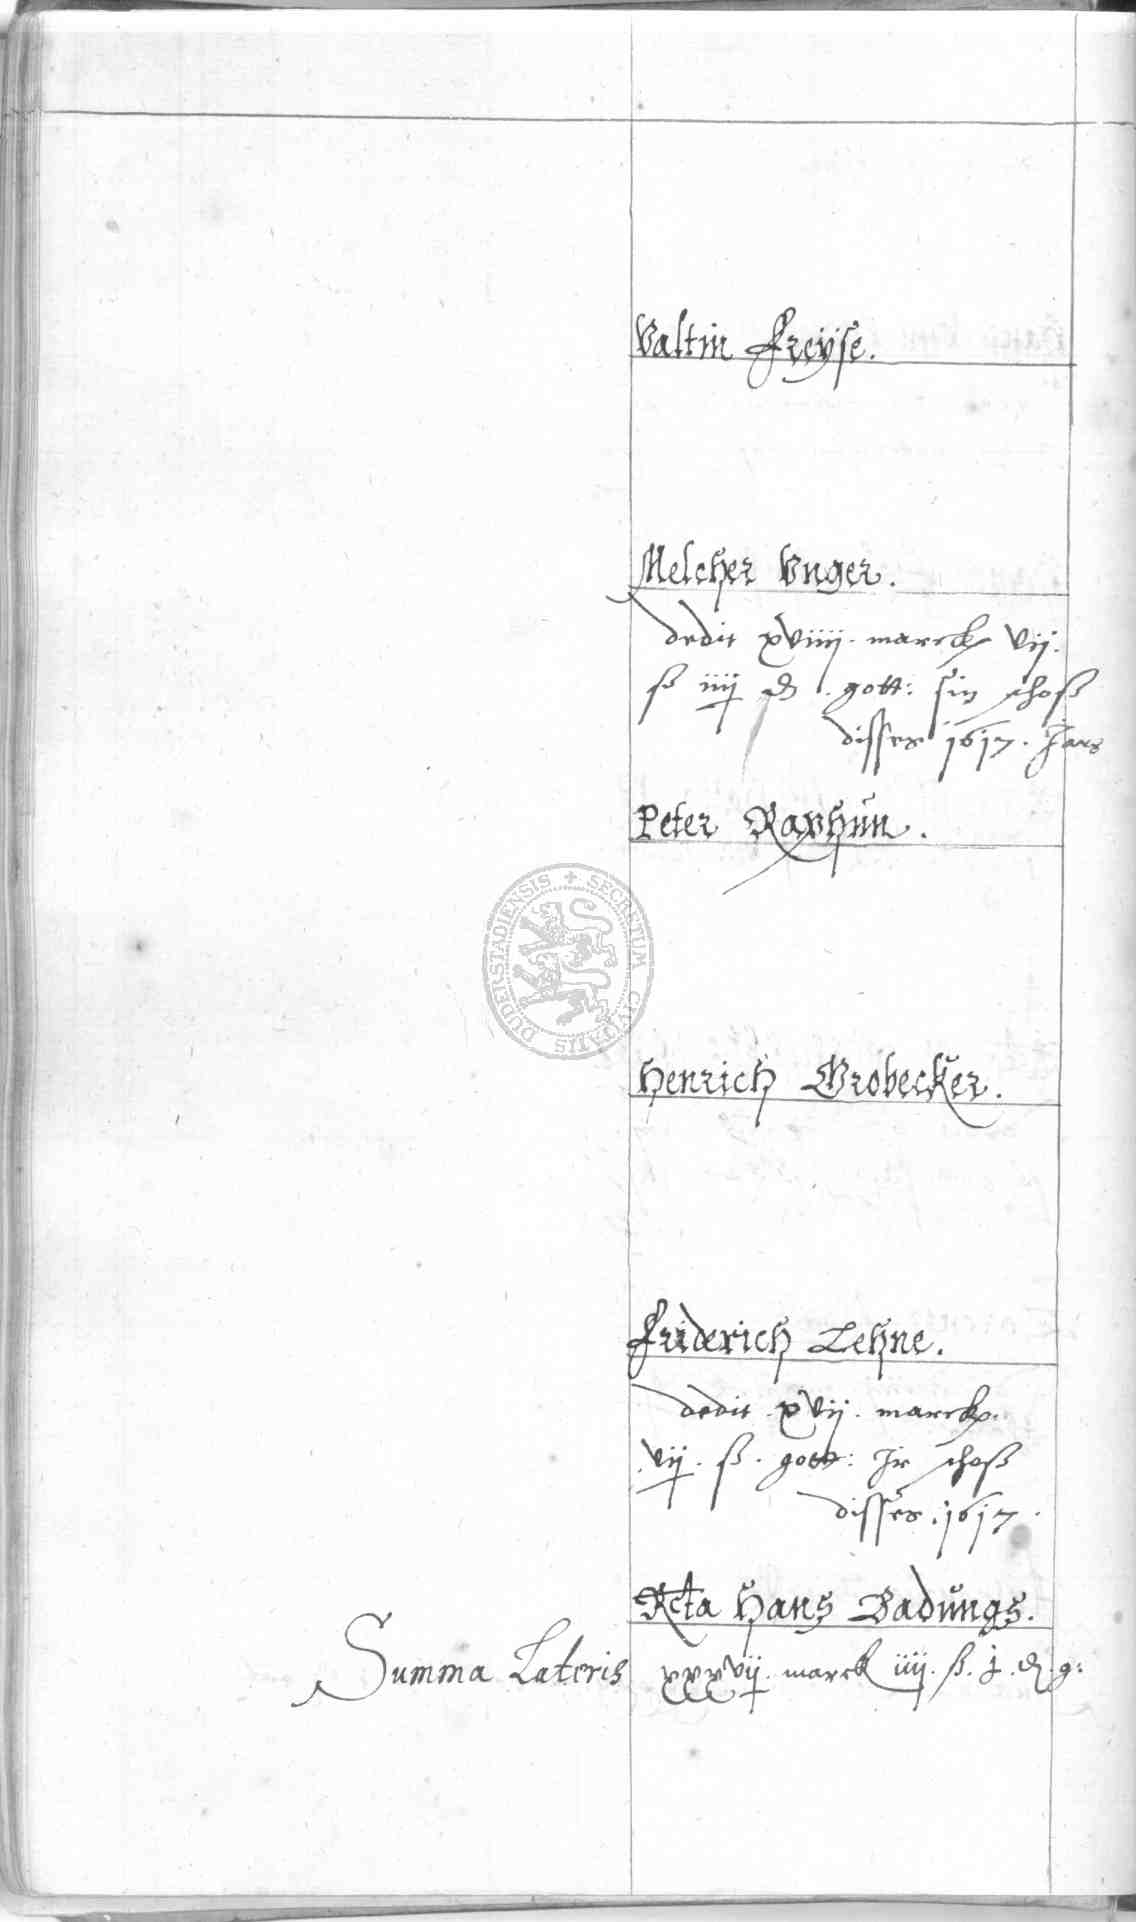 Valtin Freyse.
Melcher Vnger.
dedit xviiij. marck vij.
ß iiij ₰. gott: sin schoß
disses 1617. Jars
Peter Raphun.
DUDERSTADIENSIS + SECRETUM CIVITATIS
Henrich Grobecker.
Friderich Lehne.
dedit. xvij. marck.
vij. ß. gott: Jr schoß
disses. 1617.
Rcta Hans Badungs.
Summa Lateris xxxvij. marck iiij. ß. j. ₰. g: